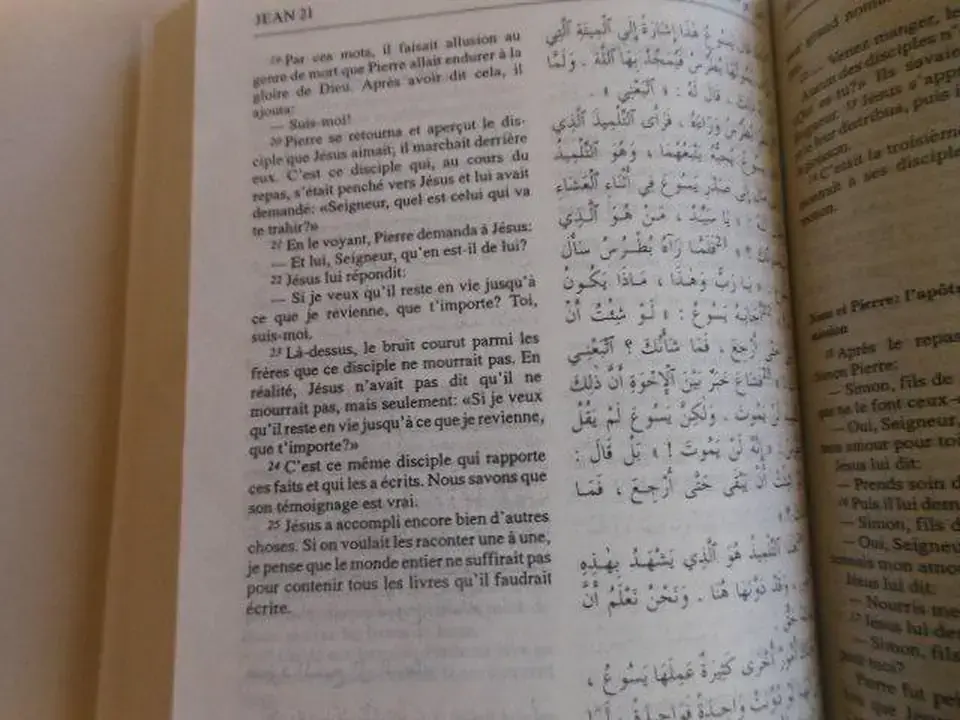 JEAN 21
19 Par ces mots, il faisait allusion au
genre de mort que Pierre allait endurer à la
gloire de Dieu. Après avoir dit cela, il
ajouta:
— Suis-moi!
20 Pierre se retourna et aperçut le dis-
ciple que Jésus aimait; il marchait derrière
eux. C'est ce disciple qui, au cours du
repas, s'était penché vers Jésus et lui avait
demandé: «Seigneur, quel est celui qui va
te trahir?»
21 En le voyant, Pierre demanda à Jésus:
— Et lui, Seigneur, qu'en est-il de lui?
22 Jésus lui répondit:
— Si je veux qu'il reste en vie jusqu'à
ce que je revienne, que t'importe? Toi,
suis-moi.
23 Là-dessus, le bruit courut parmi les
frères que ce disciple ne mourrait pas. En
réalité, Jésus n'avait pas dit qu'il ne
mourrait pas, mais seulement: «Si je veux
qu'il reste en vie jusqu'à ce que je revienne,
que t'importe?»
24 C'est ce même disciple qui rapporte
ces faits et qui les a écrits. Nous savons que
son témoignage est vrai.
25 Jésus a accompli encore bien d'autres
choses. Si on voulait les raconter une à une,
je pense que le monde entier ne suffirait pas
pour contenir tous les livres qu'il faudrait
écrire.
قَالَ يَسُوعُ هَذَا إِشَارَةً إِلَى الْمِيتَةِ الَّتِي
بُطْرُسُ فَيُمَجِّدُ بِهَا اللهَ . وَلَمَّا
قَالَ لَهُ : « اتْبَعْنِي » .
بُطْرُسُ وَرَاءَهُ ، فَرَأَى التِّلْمِيذَ الَّذِي
يَسُوعُ يُحِبُّهُ يَتْبَعُهُمَا ، وَهُوَ التِّلْمِيذُ
إِلَى صَدْرِ يَسُوعَ فِي أَثْنَاءِ الْعَشَاءِ
يَا سَيِّدُ ، مَنْ هُوَ الَّذِي
21 فَلَمَّا رَآهُ بُطْرُسُ سَأَلَ
« يَا رَبُّ وَهَذَا ، مَاذَا يَكُونُ
22 أَجَابَهُ يَسُوعُ : « لَوْ شِئْتُ أَنْ
حَتَّى أَرْجِعَ ، فَمَا شَأْنُكَ ؟ اتْبَعْنِي
23 فَشَاعَ خَبَرٌ بَيْنَ الإِخْوَةِ أَنَّ ذَلِكَ
لَنْ يَمُوتَ . وَلَكِنَّ يَسُوعَ لَمْ يَقُلْ
« إِنَّهُ لَنْ يَمُوتَ ! » بَلْ قَالَ :
شِئْتُ أَنْ يَبْقَى حَتَّى أَرْجِعَ ، فَمَا
هَذَا التِّلْمِيذُ هُوَ الَّذِي يَشْهَدُ بِهَذِهِ
وَقَدْ دَوَّنَهَا هُنَا . وَنَحْنُ نَعْلَمُ أَنَّ
أُمُورٌ أُخْرَى كَثِيرَةٌ عَمِلَهَا يَسُوعُ ،
لَوْ دُوِّنَتْ وَاحِدَةً فَوَاحِدَةً ، لَمَا
grand nombre
— Venez manger, le
Aucun des disciples n'
es-tu?» Ils savaie
Seigneur. 13 Jésus s'app
le leur distribua, puis i
poisson.
14 C'était la troisième
à ses disciple
et Pierre: l'apôt
15 Après le repas
Simon Pierre:
— Simon, fils de
que ne le font ceux-
— Oui, Seigneur,
mon amour pour toi
Jésus lui dit:
— Prends soin d
16 Puis il lui dem
— Simon, fils d
— Oui, Seigneu
mon amou
Jésus lui dit:
— Nourris me
17 Jésus lui de
— Simon, fils
Pierre fut pei